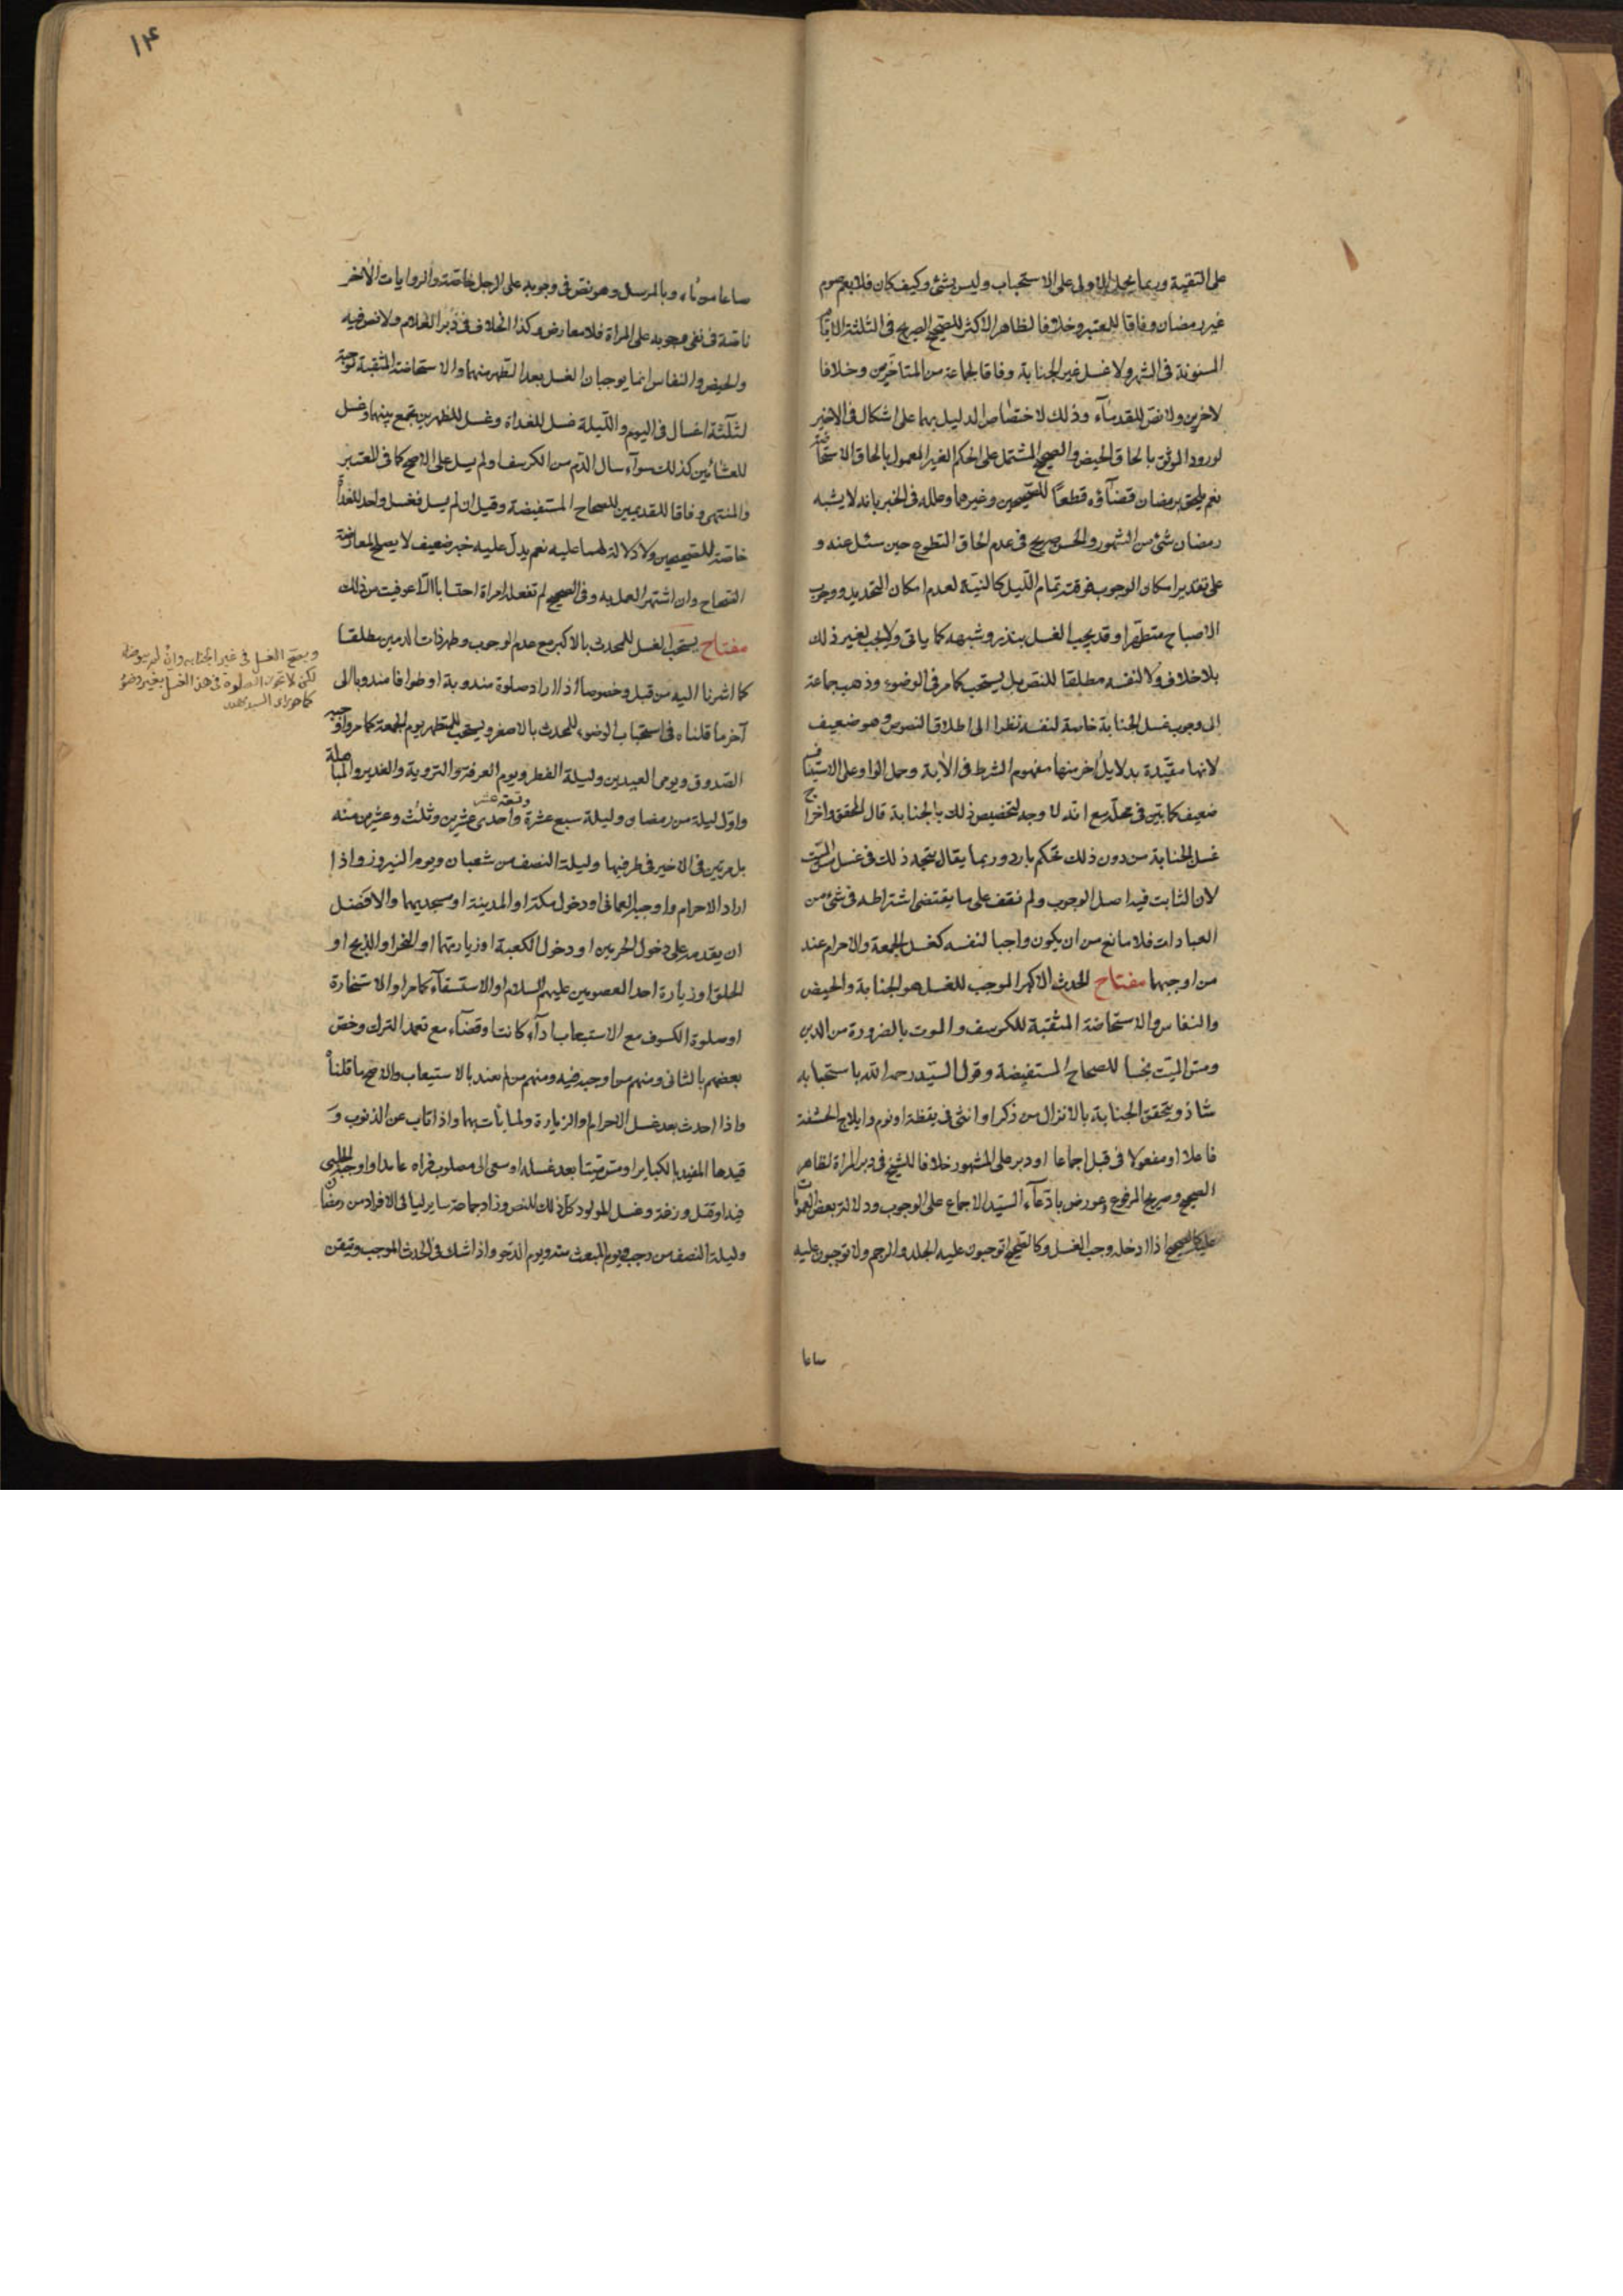 على التقية وربما يحمل الاولى على الاستحباب وليس بشئ وكيف كان فلا يعم صوم
غير رمضان وفاقا للمعتبر وخلافا لظاهر الاكثر للصحيح الصريح في الثلثة الايام
المسنونة في الشهر ولا غسل غير الجنابة وفاقا لجماعة من المتاخرين وخلافا
لاخرين ولا نص للقدماء وذلك لاختصاص الدليل بهما على اشكال في الاخير
لورود الموثق بالحاق الحيض والصحيح المشتمل على الحكم الغير المعمول بالحاق الاستحاضة
نعم يلحق برمضان قضاؤه قطعا للصحيحين وغيرهما وعلله في الخبر بانه لا يشبه
رمضان شئ من الشهور والحسن صريح في عدم الحاق التطوع حين سئل عنه و
على تقدير امكان الوجوب فوقته تمام الليل كالنية لعدم امكان التحديد ووجوب
الاصباح متطهرا وقد يجب الغسل بنذر وشبهه كما ياتى ولا يجب لغير ذلك
بلا خلاف ولا لنفسه مطلقا للنص بل يستحب كما مر في الوضوء وذهب جماعة
الى وجوب غسل الجنابة خاصة لنفسه نظرا الى اطلاق النصوص وهو ضعيف
لانها مقيدة بدلايل أخر منها مفهوم الشرط في الآية وحمل الواو على الاستيناف
ضعيف كما بين في محله مع انه لا وجه لتخصيص ذلك بالجنابة قال المحقق واخراج
غسل الجنابة من دون ذلك تحكم بارد وربما يقال يتجه ذلك في غسل مس الميت
لان الثابت فيه اصل الوجوب ولم نقف على ما يقتضى اشتراطه في شئ من
العبادات فلا مانع من ان يكون واجبا لنفسه كغسل الجمعة والاحرام عند
من اوجبهما مفتاح الحدث الاكبر الموجب للغسل هو الجنابة والحيض
والنفاس والاستحاضة المثقبة للكرسف والموت بالضرورة من الدين
ومس الميت نجسا للصحاح المستفيضة وقول السيد رحمه الله باستحبابه
شاذ ويتحقق الجنابة بالانزال من ذكر او انثى في يقظة او نوم وايلاج الحشفة
فاعلا او مفعولا في قبل اجماعا او دبر على المشهور خلافا للشيخ في دبر المراة لظاهر
الصحيح وصريح المرفوع وعورض بادعاء السيد الاجماع على الوجوب ودلالة بعض العمومات
عليه كالصحيح اذا ادخله وجب الغسل وكالصحيح اتوجبون عليه الجلد والرجم ولا توجبون عليه
صاعا
١٤
صاعا من ماء وبالمرسل وهو نص في وجوبه على الرجل خاصة والروايات الأخر
ناصة في نفى وجوبه على المراة فلا معارض وكذا الخلاف في دبر الغلام ولا نص فيه
والحيض والنفاس انما يوجبان الغسل بعد التطهر منهما والاستحاضة المثقبة موجبة
لثلثة اغسال في اليوم والليلة غسل للغداة وغسل للظهرين تجمع بينهما وغسل
للعشائين كذلك سواء سال الدم من الكرسف او لم يسل على الاصح كما في المعتبر
والمنتهى وفاقا للقديمين للصحاح المستفيضة وقيل ان لم يسل فغسل واحد للغداة
خاصة للصحيحين ولا دلالة لهما عليه نعم يدل عليه خبر ضعيف لا يصلح لمعارضة
الصحاح وان اشتهر العمل به وفي الصحيح لم تفعله امراة احتسابا الا عوفيت من ذلك
مفتاح يستحب الغسل للمحدث بالاكبر مع عدم الوجوب وطهر ذات الدمين مطلقا
كما اشرنا اليه من قبل وخصوصا اذا اراد صلوة مندوبة او طوافا مندوبا الى
آخر ما قلناه في استحباب الوضوء للمحدث بالاصغر ويستحب للمتطهر يوم الجمعة كما مر واوجبه
الصدوق ويومى العيدين وليلة الفطر ويوم العرفة والتروية والغدير والمباهلة
وتسعة عشر
واول ليلة من رمضان وليلة سبع عشرة واحدى عشرين وثلث وعشرين منه
بل مرتين في الاخير في طرفيها وليلة النصف من شعبان ويوم النيروز واذا
اراد الاحرام واوجبه العمانى او دخول مكة او المدينة او مسجديهما والافضل
ان يقدمه على دخول الحرمين او دخول الكعبة او زيارتها او النحر او الذبح او
الحلق او زيارة احد المعصومين عليهم السلام او الاستسقاء كما مر او الاستخارة
او صلوة الكسوف مع الاستيعاب اداء كانت او قضاء مع تعمد الترك وخص
بعضهم بالثانى ومنهم من اوجبه فيه ومنهم من لم يعتد بالاستيعاب والاصح ما قلناه
واذا احدث بعد غسل الاحرام والزيارة ولما يأت بهما واذا تاب عن الذنوب و
قيدها المفيد بالكباير او مس ميتا بعد غسله او سعى الى مصلوب فراه عامدا واوجبه الحلبي
فيه او قتل وزغة وغسل المولود كل ذلك للنص وزاد جماعة ساير ليالى الافراد من رمضان
وليلة النصف من رجب ويوم المبعث منه ويوم الدحو واذا شك في الحدث الموجب وتيقن
ويصح الغسل في غير الجنابه وان لم يتوضا
لكن لا تجوز الصلوة في هذا الغسل بغير وضوء
كما هو راى السيد